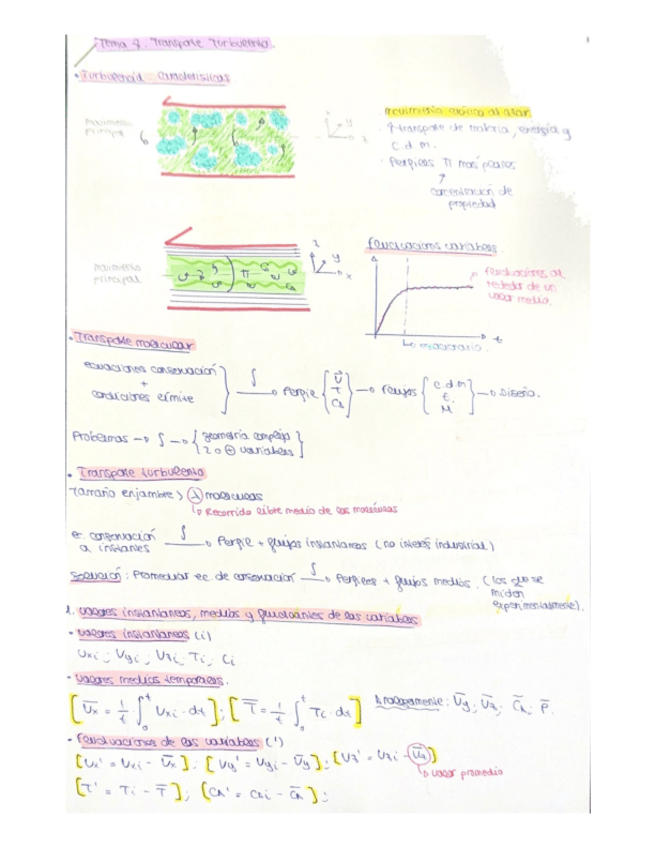 Tema 7. Transporte Turbulento.
• Turbulencia. Características
movimiento principal
movimiento caótico al azar
· ↑ transporte de materia, energía y c.d.m.
· Perfiles π más planos
concentración de propiedad
movimiento principal
z y x
Fluctuaciones variables
fluctuaciones al rededor de un valor medio.
estacionario.
t
• Transporte molecular
ecuaciones conservación + condiciones límite } ∫ → Perfil { v T CA } → Flujos { c.d.m E. M } → Diseño.
Problemas → ∫ → { geometría compleja 2 o ⊕ variables }
• Transporte turbulento
Tamaño enjambre > λ moléculas
↳ Recorrido libre medio de las moléculas
ec. conservación a instantes ∫ → Perfil + flujos instantáneos (no interés industrial)
Solución: Promediar ec. de conservación ∫ → Perfiles + flujos medios. (los que se miden experimentalmente).
1. Valores instantáneos, medios y fluctuantes de las variables
• Valores instantáneos (i)
Vxi ; Vyi ; Vzi ; Ti ; Ci
• Valores medios temporales.
[V̄x = 1/t ∫₀ᵗ Vxi · dt] ; [T̄ = 1/t ∫₀ᵗ Ti · dt] Análogamente: V̄y ; V̄z ; C̄A ; P̄.
• Fluctuaciones de las variables (')
[Vx' = Vxi - V̄x] ; [Vy' = Vyi - V̄y] ; [Vz' = Vzi - V̄z]
↳ valor promedio
[T' = Ti - T̄] ; [CA' = CAi - C̄A] ;